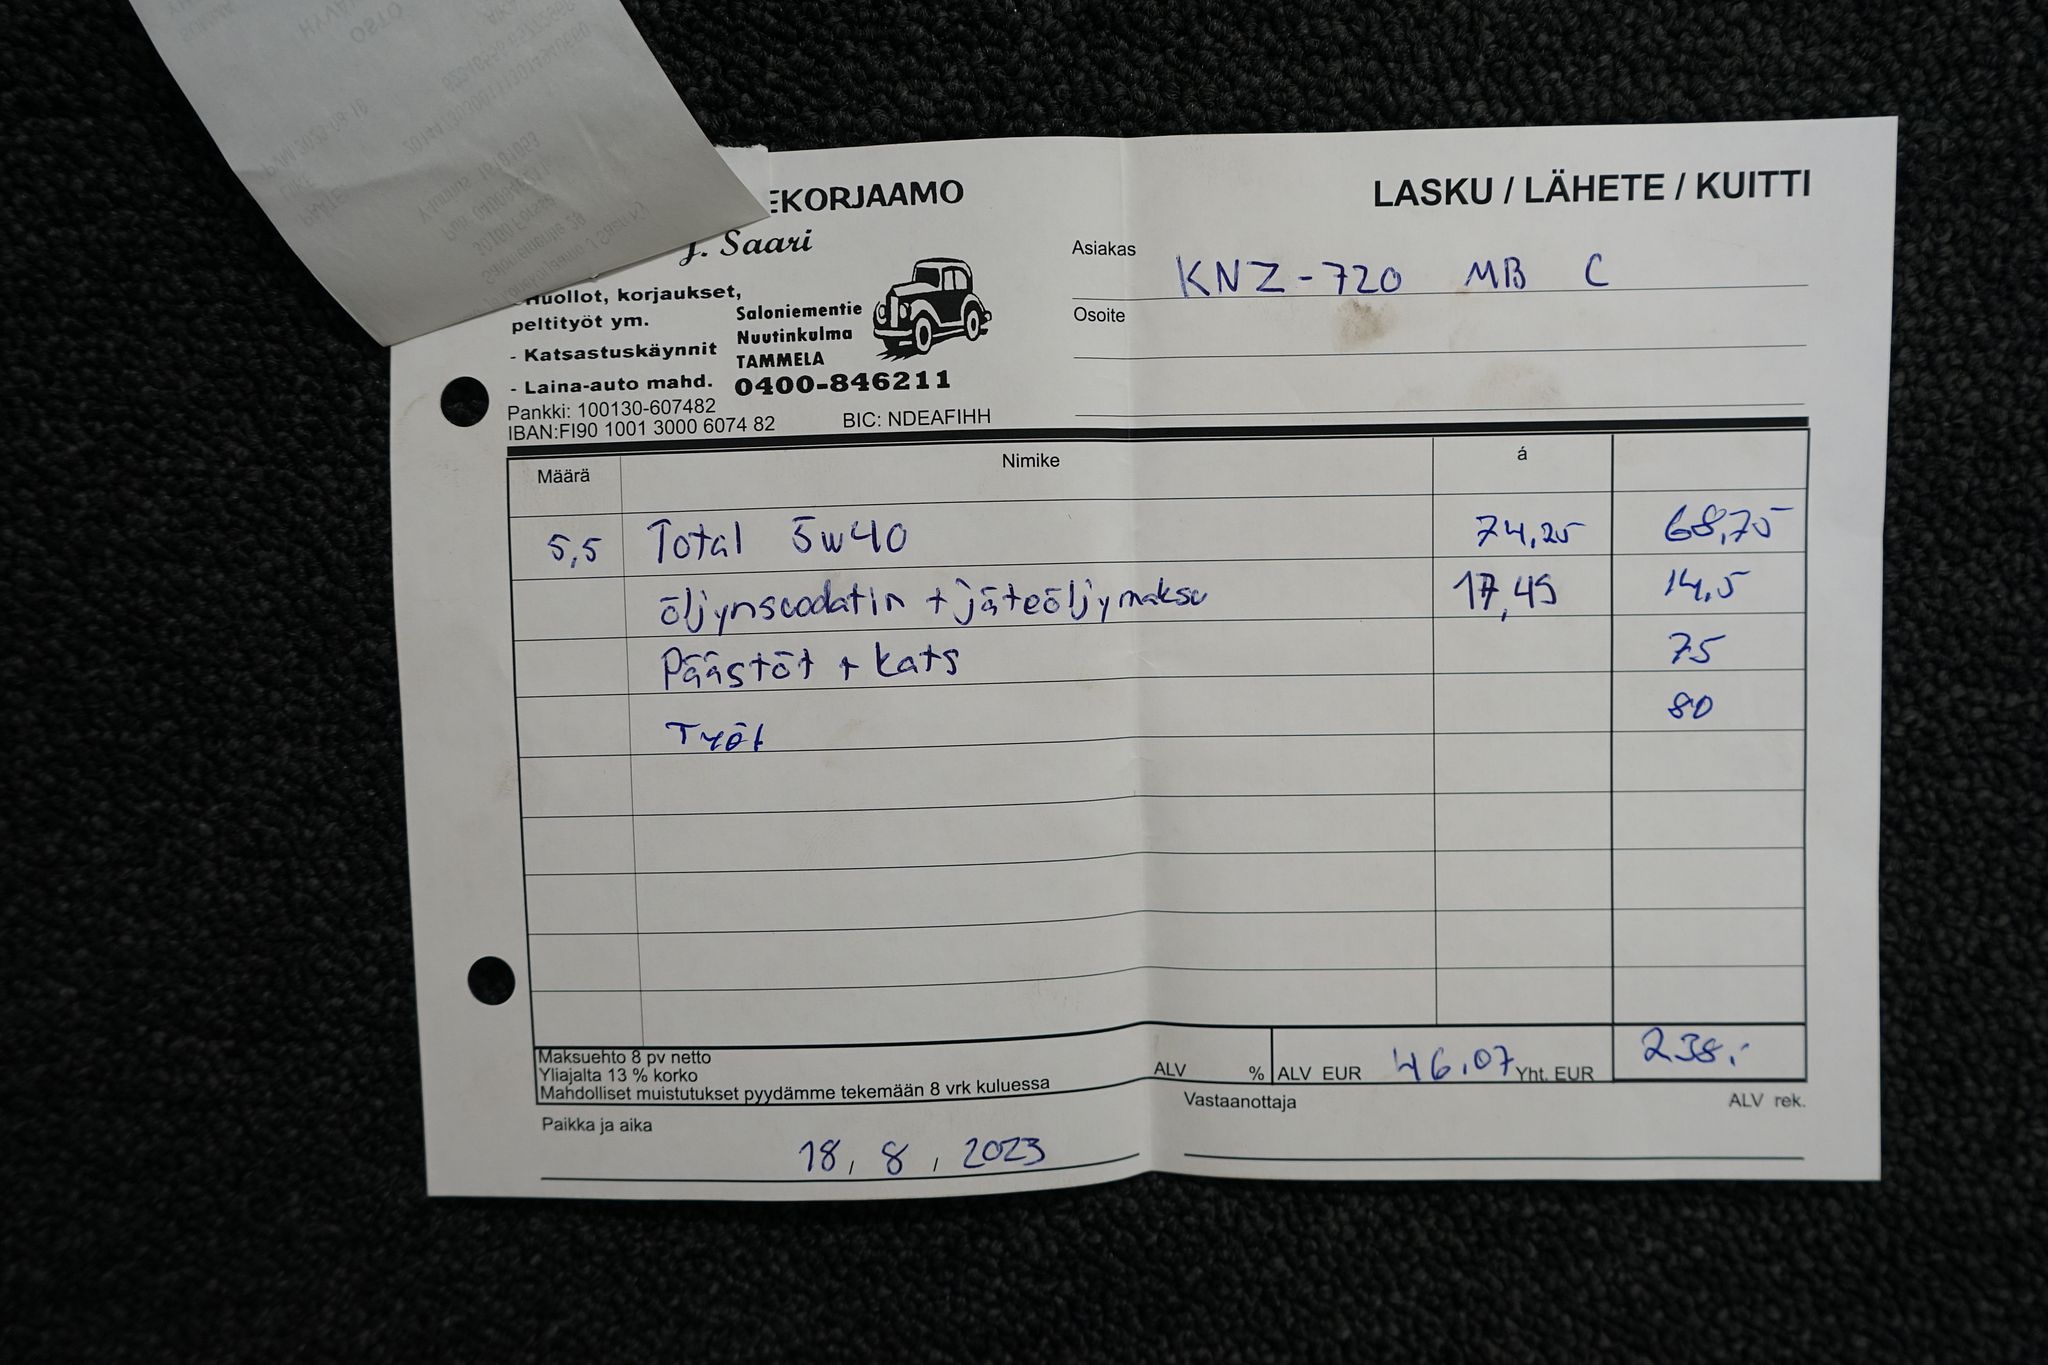 EKORJAAMO
J. Saari
huollot, korjaukset,
peltityöt ym.
- Katsastuskäynnit
- Laina-auto mahd.
Saloniementie
Nuutinkulma
TAMMELA
0400-846211
Pankki: 100130-607482
IBAN:FI90 1001 3000 6074 82 BIC: NDEAFIHH
LASKU / LÄHETE / KUITTI
Asiakas KNZ-720 MB C
Osoite
Määrä Nimike á
5,5 Total 5w40 74,25 68,75
öljynsuodatin + jäteöljymaksu 17,45 14,5
Päästöt + kats 75
Työt 80
Maksuehto 8 pv netto
Yliajalta 13 % korko
Mahdolliset muistutukset pyydämme tekemään 8 vrk kuluessa
ALV % ALV EUR 46,07 Yht. EUR 238,-
Paikka ja aika 18, 8, 2023
Vastaanottaja ALV rek.